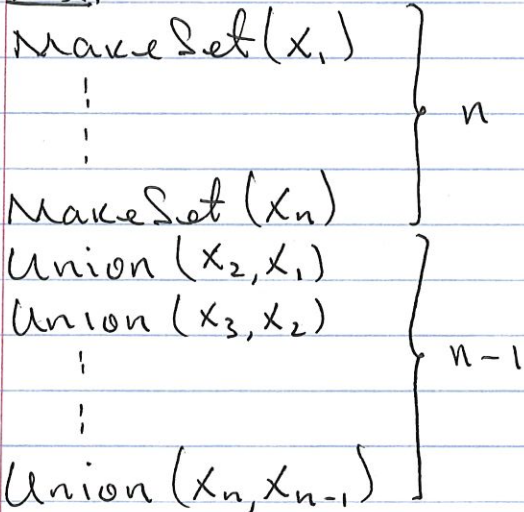 MakeSet(x₁)
n
MakeSet(xₙ)
Union (x₂,x₁)
Union (x₃,x₂)
n-1
Union (xₙ,xₙ₋₁)